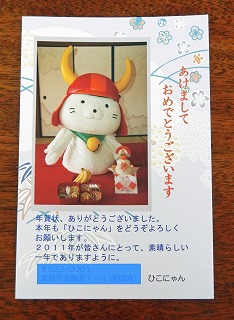 あけまして
おめでとうございます
年賀状、ありがとうございました。
本年も「ひこにゃん」をどうぞよろしく
お願いします。
2011年が皆さんにとって、素晴らしい
一年でありますように。
〒522-0061
ひこにゃん